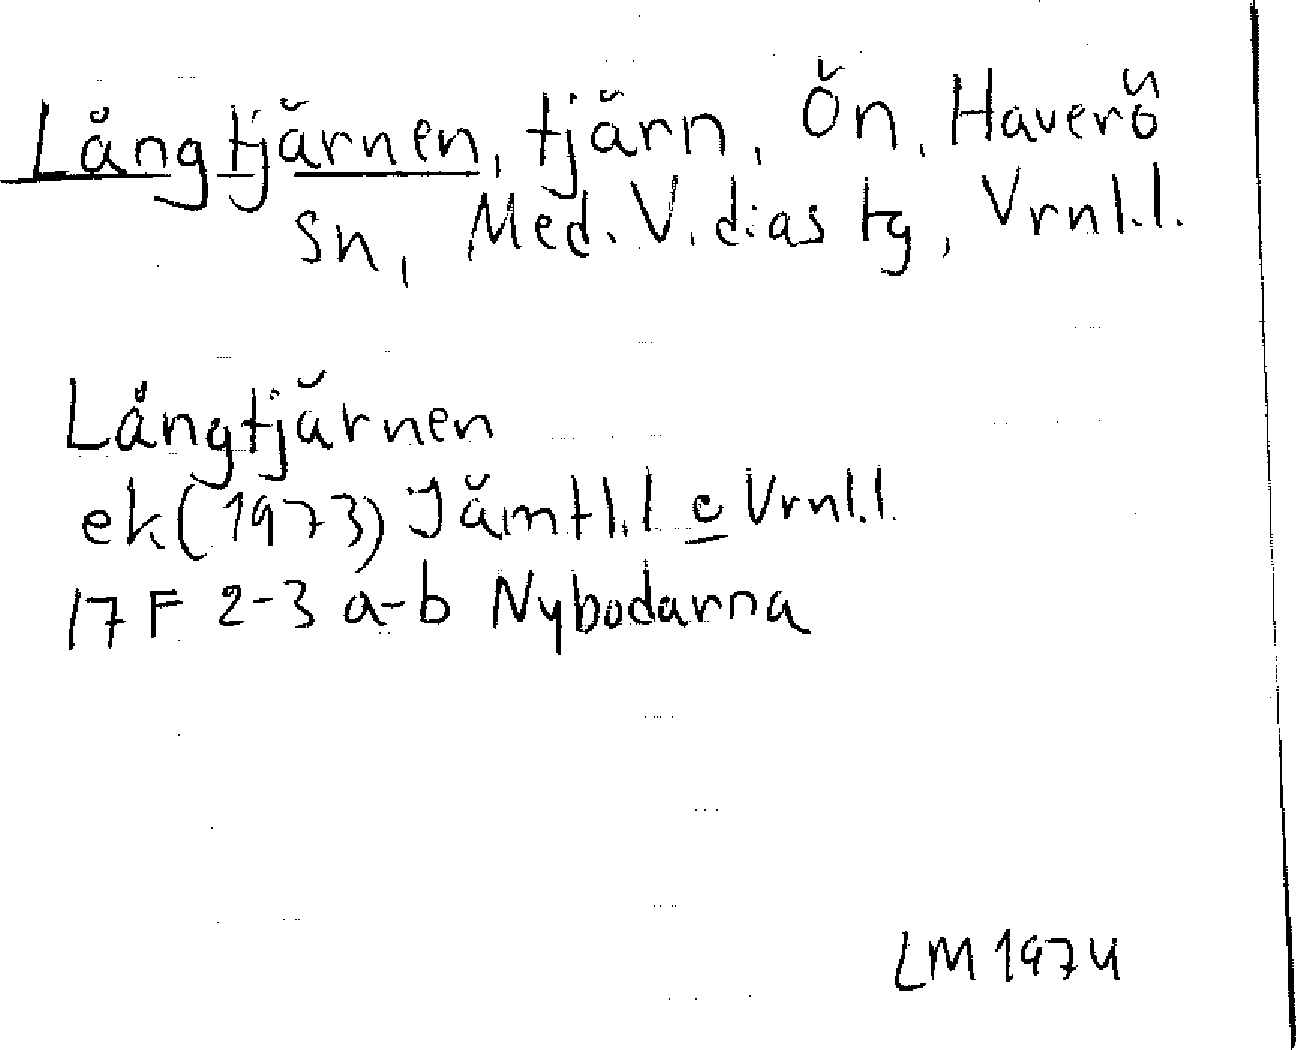 Långtjärnen, tjärn, Ön, Haverö
sn, Med. V. dias tg, Vrnl.l.
Långtjärnen
ek (1973) Jämtl.l c Vrnl.l
17 F 2-3 a-b Nybodarna
LM 1974